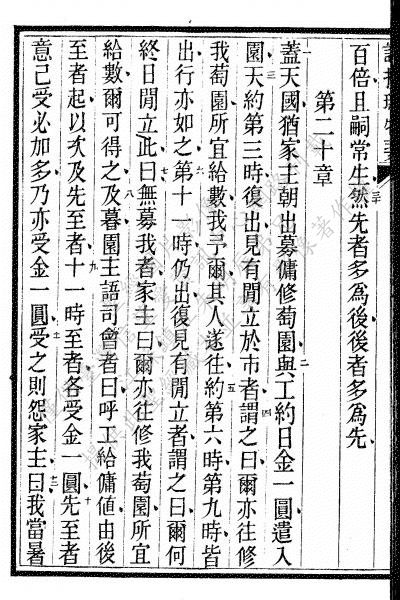 百倍且嗣常生然先者多爲後後者多爲先
第二十章
蓋天國猶家主朝出募傭修萄園與工約日金一圓遣入
園天約第三時復出見有閒立於市者謂之曰爾亦往修
我萄園所宜給數我予爾其人遂往約第六時第九時皆
出行亦如之第十一時仍出復見有閒立者謂之曰爾何
終日閒立此曰無募我者家主曰爾亦往修我萄園所宜
給數爾可得之及暮園主語司會者曰呼工給傭値由後
至者起以次及先至者十一時至者各受金一圓先至者
意己受必加多乃亦受金一圓受之則怨家主曰我當暑